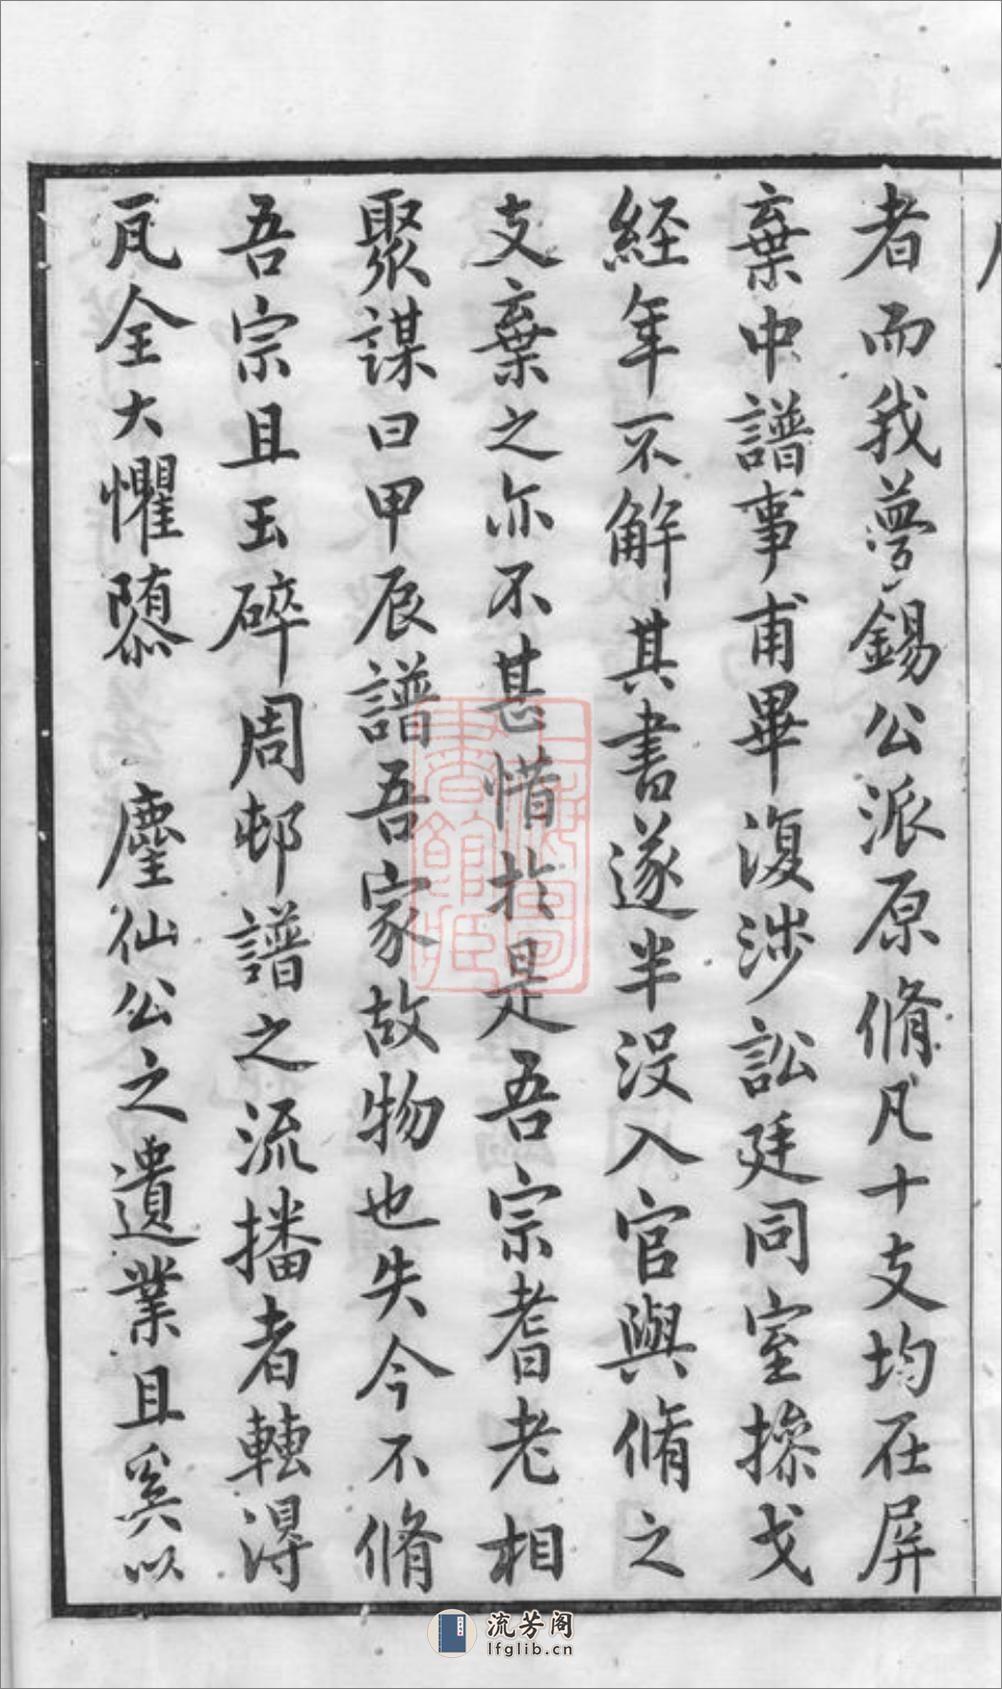 者而我夢錫公派原脩凡十支均在屏
棄中譜事甫畢復涉訟廷同室操戈
経年不解其書遂半没入官與脩之
支棄之亦不甚惜於是吾宗耆老相
聚謀曰甲辰譜吾家故物也失今不脩
吾宗且玉碎周邨譜之流播者轉得
瓦全大懼隳 塵仙公之遺業且奚以
上海圖書館藏
流芳阁
lfglib.cn